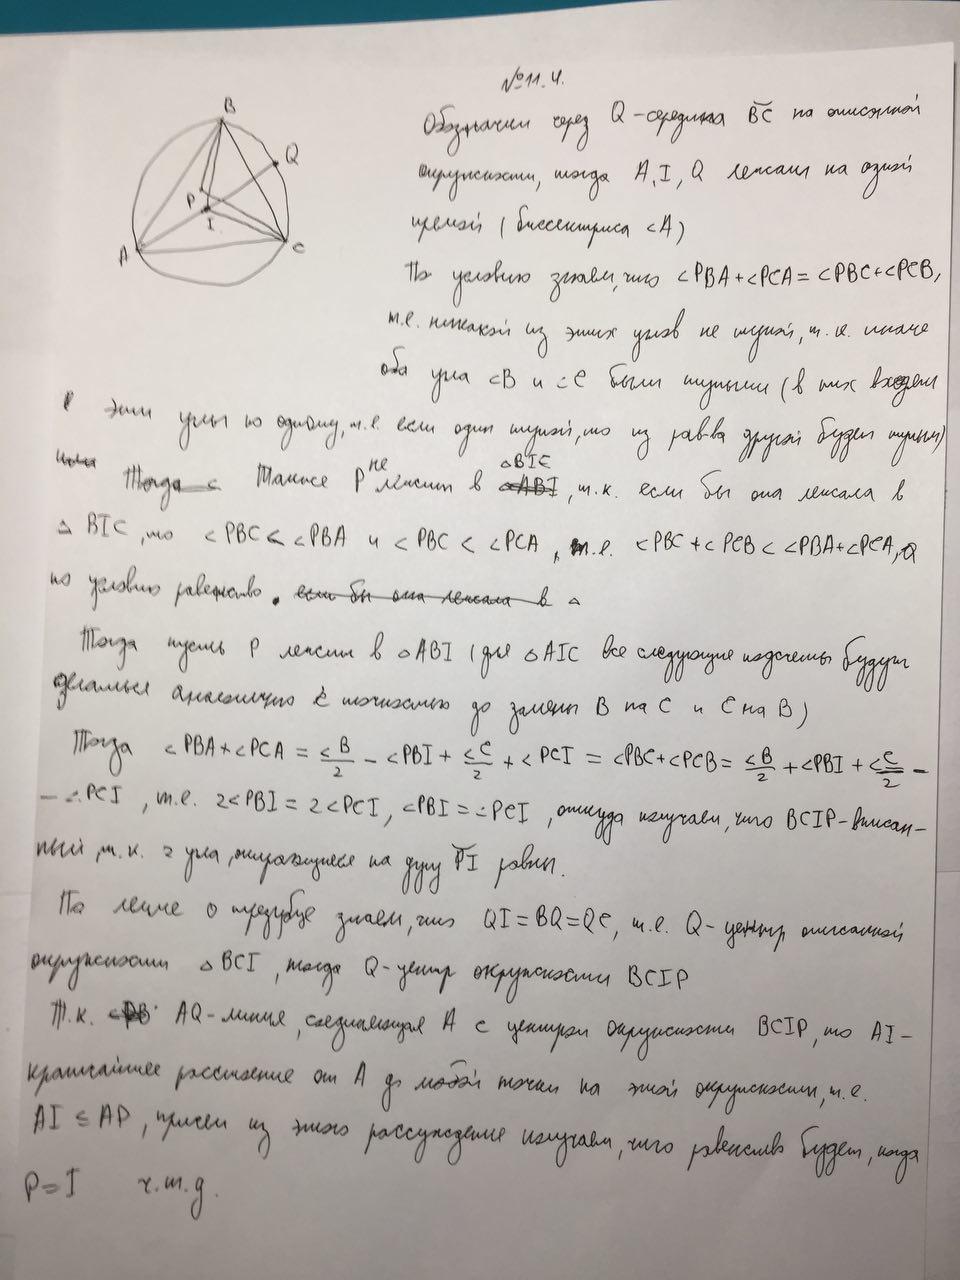 №11.4.
Обозначим через Q - середина BC на описанной
окружности, тогда A, I, Q лежат на одной
прямой (биссектриса ∠A)
По условию знаем, что ∠PBA+∠PCA=∠PBC+∠PCB,
т.е. никакой из этих углов не тупой, т.к. иначе
оба угла ∠B и ∠C были тупыми (в них входят
эти углы по одному, т.е. если один тупой, то из рав-ва другой будет тупым)
Также P не лежит в △BIC, т.к. если бы она лежала в
△ BIC, то ∠PBC < ∠PBA и ∠PBC < ∠PCA, т.е. ∠PBC+∠PCB<∠PBA+∠PCA, а
по условию равенство.
Тогда пусть P лежит в △ABI (для △AIC все следующие подсчеты будут
делаться аналогично с точностью до замены B на C и C на B)
Тогда ∠PBA+∠PCA = ∠B/2 - ∠PBI + ∠C/2 + ∠PCI = ∠PBC+∠PCB = ∠B/2 + ∠PBI + ∠C/2 -
- ∠PCI, т.е. 2∠PBI = 2∠PCI, ∠PBI = ∠PCI, откуда получаем, что BCIP-вписан-
ный, т.к. 2 угла, опирающиеся на дугу PI равны.
По лемме о трезубце знаем, что QI=BQ=QC, т.е. Q-центр описанной
окружности △BCI, тогда Q-центр окружности BCIP
Т.к. AQ-линия, соединяющая A с центром окружности BCIP, то AI-
кратчайшее расстояние от A до любой точки на этой окружности, т.е.
AI ≤ AP, причем из этого рассуждение получаем, что равенство будет, когда
P=I ч.т.д.
B
Q
P
I
A
C